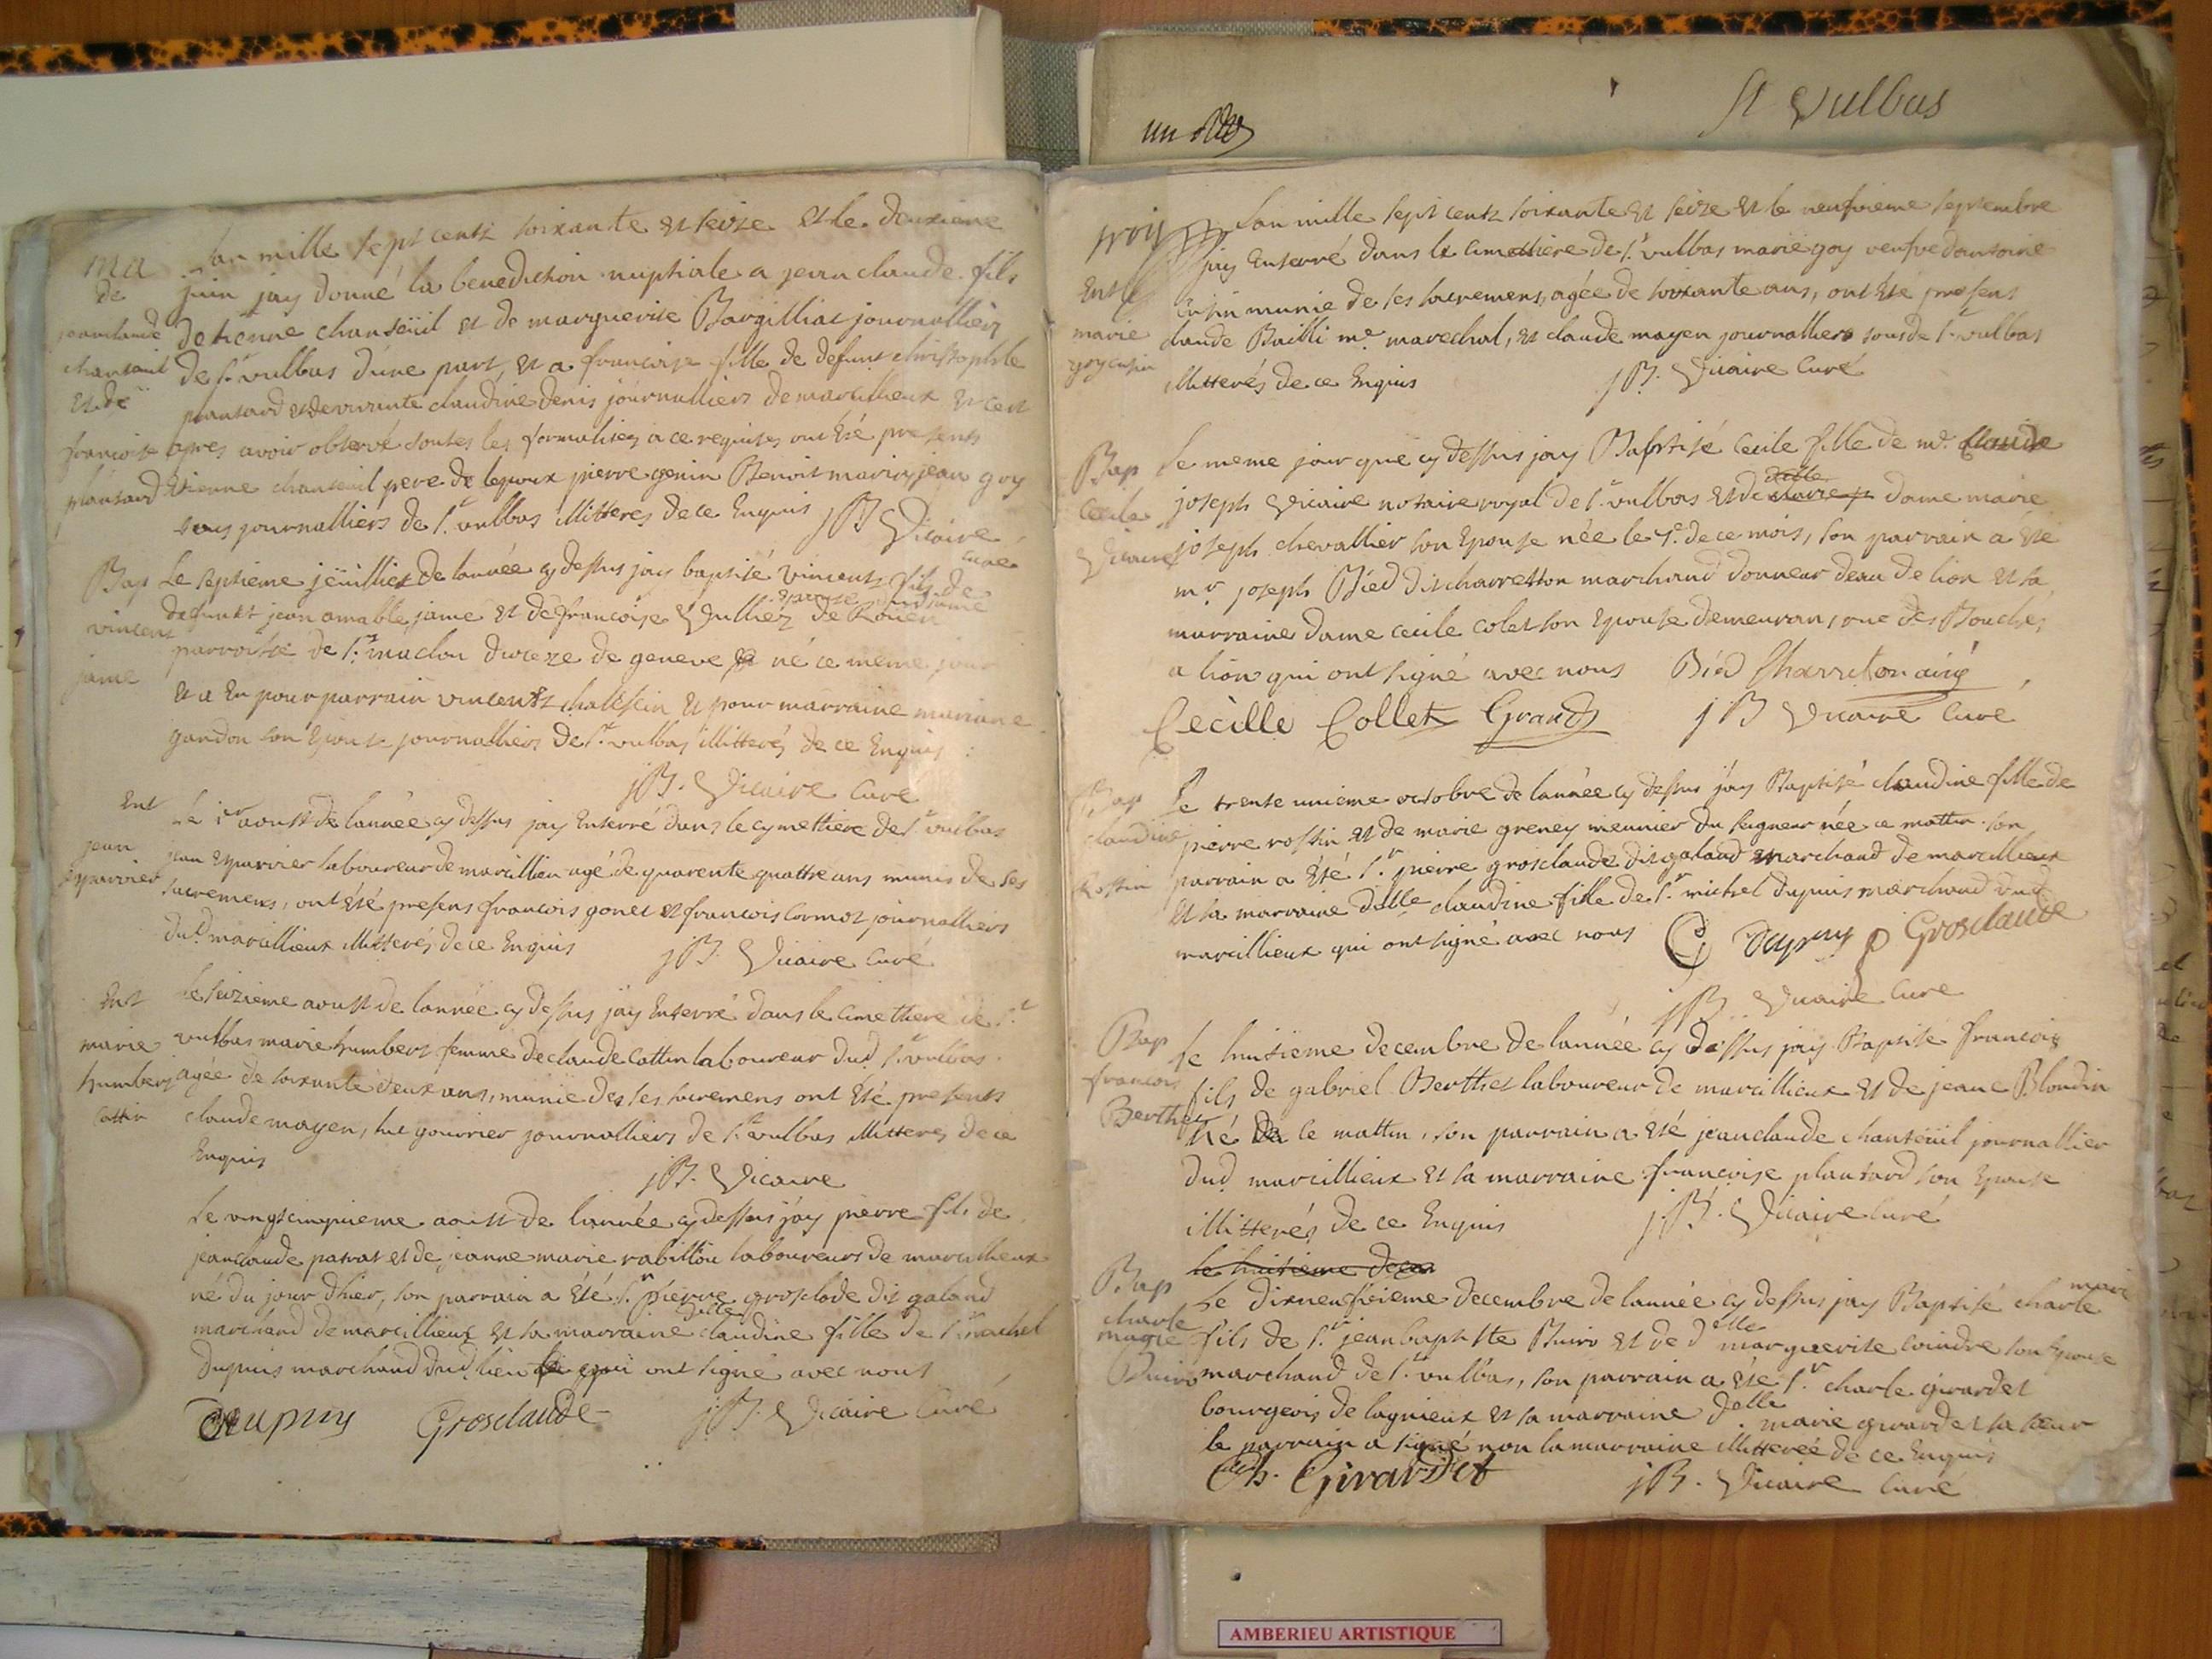 St Vulbas
ma
de
jeanclaude
chanteuil
Et de
francoise
plantard
Lan mille sept centz soixante et seize et le deuxieme
juin jay donné la benediction nuptiale a jean claude fils
detienne chanteüil et de marguerite Bargilliat journalliers
de st vulbas dune part, et a francoise fille de defunt christophle
plantard et de vivante claudine denis journalliers de marcillieux et cest
apres avoir observé toutes les formalites a ce requises ont été presents
Etienne chanteuil pere de lepoux pierre genin Benoit marin jean goy
tous journalliers de st vulbas illitteres de ce Enquis JB Vicaire
curé
Bap
vincent
jame
Le septieme jëuillet de lannée cy dessus jay baptisé vincent fils de
defunkt jean amable jame et de francoise Vulliez de Rouen
parroisse de st maclou dioceze de geneve né ce meme jour
et a Eu pour parrain vincent chattelin et pour marraine mariane
gandon son Epouse journalliers de st vulbas illitterés de ce Enquis
JB. Vicaire Curé
Ent
jean
eparvier
Le 1er aoust de lannée cy dessus jay Enterré dans le cymettiere de st vulbas
jean eparvier laboureur de marcillieu agé de quarente quattre ans munis de ses
sacremens, ont été presens francois gonet et francois Cormot journalliers
dud marcillieux illitterés de ce Enquis JB. Vicaire Curé
Ent
marie
humbert
cottin
Le seizieme aoust de lannée cy dessus jay Enterré dans le cimettiere de st
vulbas marie humbert femme de claude Cottin laboureur dud st vulbas
agée de soixante deux ans, munie de ses sacremens ont été presents
claude mayen, luc gouvrier journalliers de st vulbas illitteres de ce
Enquis
JB. Vicaire
Le vingtcinquieme aoust de lannée cy dessus jay pierre fils de
jeanclaude patrat et de jeanne marie rabillou laboureurs de marcillieux
né du jour dhier, son parrain a été sr pierre grosclode dit galand
marchand de marcillieux et sa marraine delle claudine fille de sr michel
dupuis marchand dud lieu qui ont signé avec nous
Dupuy Grosclaude JB. Vicaire Curé
Ent
marie
goy cusin
Lan mille sept centz soixante et seize et le neufvieme septembre
jay Enterré dans le cimettiere de st vulbas marie goy veufve dantoine
Cusin munie de ses sacremens, agée de soixante ans, ont été presens
claude Bailli me marechal, et claude mayen journalliers tous de st vulbas
illitterés de ce Enquis JB. Vicaire Curé
Bap
Cecile
Vicaire
Le meme jour que cy dessus jay Baptisé Cecile fille de me claude
joseph Vicaire notaire royal de st vulbas et de dame marie
joseph chevallier son Epouse née le 7e de ce mois, son parrain a été
mr joseph Biéd dit charretton marchand donneur deau de lion et sa
marraine dame cecile colet son Epouse demeurans rue des Bouches
a lion qui ont signé avec nous Biéd Charreton ainé
Cecille Collet Grand JB Vicaire Curé
Bap
claudine
Rostin
Le trente unieme octobre de lannée cy dessus jay Baptisé claudine fille de
pierre rostin et de marie greney meunier du seigneur née ce mattin. son
parrain a été sr pierre grosclaude dit galand marchand de marcillieux
et sa marraine delle claudine fille de sr michel dupuis marchand dud
marcillieux qui ont signé avec nous C Dupuy P Grosclaude
JB Vicaire Curé
Bap
francois
Berthet
Le huitieme decembre de lannée cy dessus jay Baptisé francois
fils de gabriel Berthet laboureur de marcillieux et de jeane Blondin
né ce mattin, son parrain a été jeanclaude chanteüil journallier
dud marcillieux et sa marraine francoise plantard son Epouse
illitterés de ce Enquis JB. Vicaire Curé
le huitieme decem
Bap
charle
marie
Buiro
Le dixneufvieme decembre de lannée cy dessus jay Baptisé charle marie
fils de sr jean baptiste Buiro et de delle marguerite Coindre son Epouse
marchand de st vulbas, son parrain a été sr charle girardet
bourgeois de lagnieux et sa marraine delle marie girardet sa sœur
le parrain a signé non la marraine illitterée de ce Enquis
Ch. Girardet JB. Vicaire Curé
AMBERIEU ARTISTIQUE